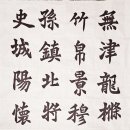 無津龍
竹帛景穆
孫鎮北將
史城陽懷